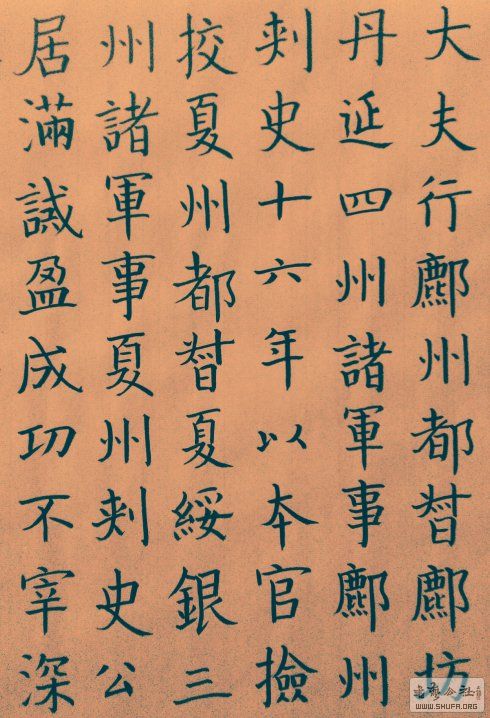 大夫行鄜州都督鄜坊
丹延四州諸軍事鄜州
刺史十六年以本官撿
挍夏州都督夏綏銀三
州諸軍事夏州刺史公
居滿誡盈成功不宰深
書法公社
WWW.SHUFA.ORG